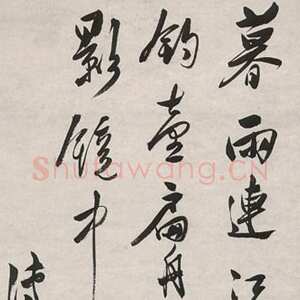 暮雨連江
釣壺扁舟
影鏡中
Shufawang.CN